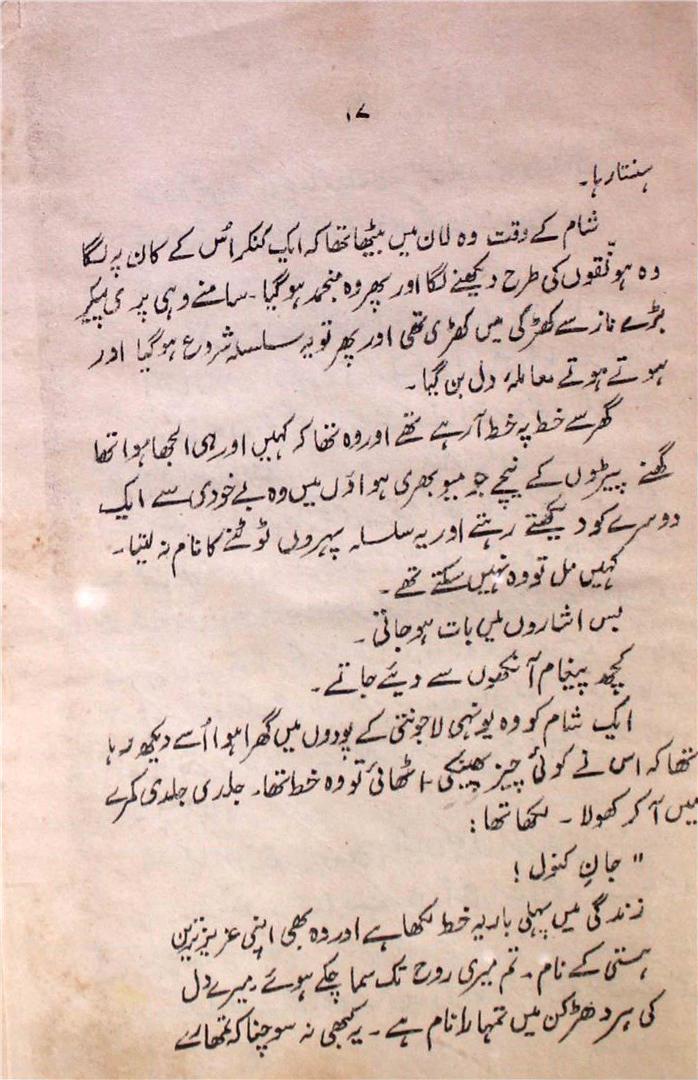 ۱۷
ہنستا رہا۔
شام کے وقت وہ لان میں بیٹھا تھا کہ ایک کنکر اُس کے کان پہ لگا
وہ ہونّقوں کی طرح دیکھنے لگا اور پھر وہ منجمد ہو گیا۔ سامنے وہی پری پیکر
بڑے ناز سے کھڑکی میں کھڑی تھی اور پھر تو یہ سلسلہ شروع ہو گیا اور
ہوتے ہوتے معاملۂ دل بن گیا۔
گھر سے خط پہ خط آ رہے تھے اور وہ تھا کہ کہیں اور ہی الجھا ہوا تھا
گھنے پیڑوں کے نیچے خوشبو بھری ہواؤں میں وہ بے خودی سے ایک
دوسرے کو دیکھتے رہتے اور یہ سلسلہ پہروں ٹوٹنے کا نام نہ لیتا۔
کہیں مل تو وہ نہیں سکتے تھے۔
بس اشاروں میں بات ہو جاتی۔
کچھ پیغام آنکھوں سے دیئے جاتے۔
ایک شام کو وہ یونہی لاجونتی کے پودوں میں گھرا ہوا اُسے دیکھ رہا
تھا کہ اس نے کوئی چیز پھینکی۔ اٹھائی تو وہ خط تھا۔ جلدی جلدی کمرے
میں آ کر کھولا۔ لکھا تھا:
" جانِ کنول!
زندگی میں پہلی بار یہ خط لکھا ہے اور وہ بھی اپنی عزیز ترین
ہستی کے نام۔ تم میری روح تک سما چکے ہوئے۔ میرے دل
کی ہر دھڑکن میں تمہارا نام ہے۔ یہ کبھی نہ سوچنا کہ تمہارے